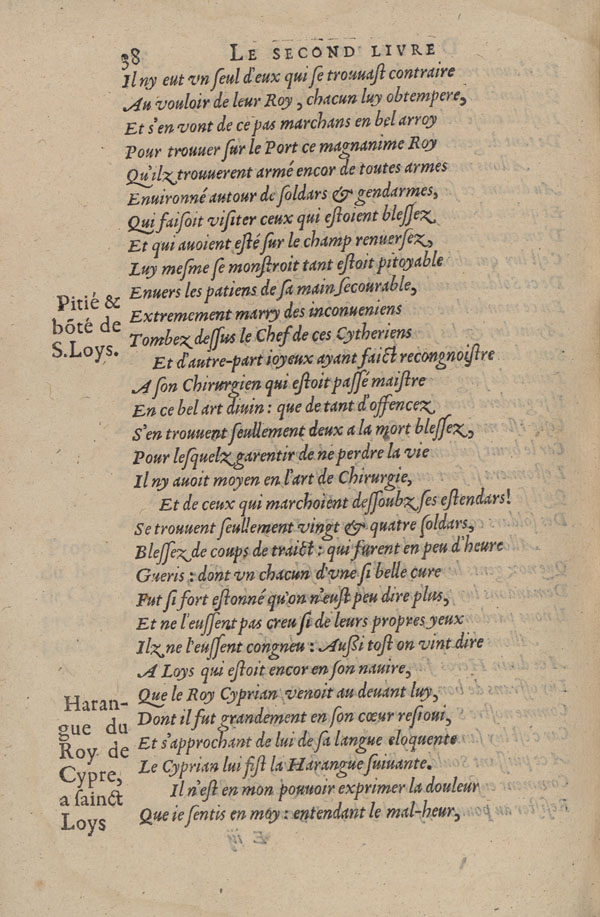 38 LE SECOND LIVRE
Il ny eut vn seul d'eux qui se trouuast contraire
Au vouloir de leur Roy, chacun luy obtempere,
Et s'en vont de ce pas marchans en bel arroy
Pour trouuer sur le Port ce magnanime Roy
Qu'ilz trouuerent armé encor de toutes armes
Enuironné autour de soldars & gendarmes,
Qui faisoit visiter ceux qui estoient blessez
Et qui auoient esté sur le champ renuersez,
Luy mesme se monstroit tant estoit pitoyable
Enuers les patiens de sa main secourable,
Pitié &
bõté de
S. Loys.
Extremement marry des inconueniens
Tombez dessus le Chef de ces Cytheriens
Et d'autre-part ioyeux ayant faict recongnoistre
A son Chirurgien qui estoit passé maistre
En ce bel art diuin: que de tant d'offencez
S'en trouuent seullement deux a la mort blessez,
Pour lesquelz garentir de ne perdre la vie
Il ny auoit moyen en l'art de Chirurgie,
Et de ceux qui marchoient dessoubz ses estendars!
Se trouuent seullement vingt & quatre soldars,
Blessez de coups de traict: qui furent en peu d'heure
Gueris: dont vn chacun d'vne si belle cure
Fut si fort estonné qu'on n'eust peu dire plus,
Et ne l'eussent pas creu si de leurs propres yeux
Ilz ne l'eussent congneu: Aussi tost on vint dire
A Loys qui estoit encor en son nauire,
Que le Roy Cyprian venoit au deuant luy,
Haran-
gue du
Roy de
Cypre,
a sainct
Loys
Dont il fut grandement en son cœur resioui,
Et s'approchant de lui de sa langue eloquente
Le Cyprian lui fist la Harangue suiuante.
Il n'est en mon pouuoir exprimer la douleur
Que ie sentis en moy: entendant le mal-heur,